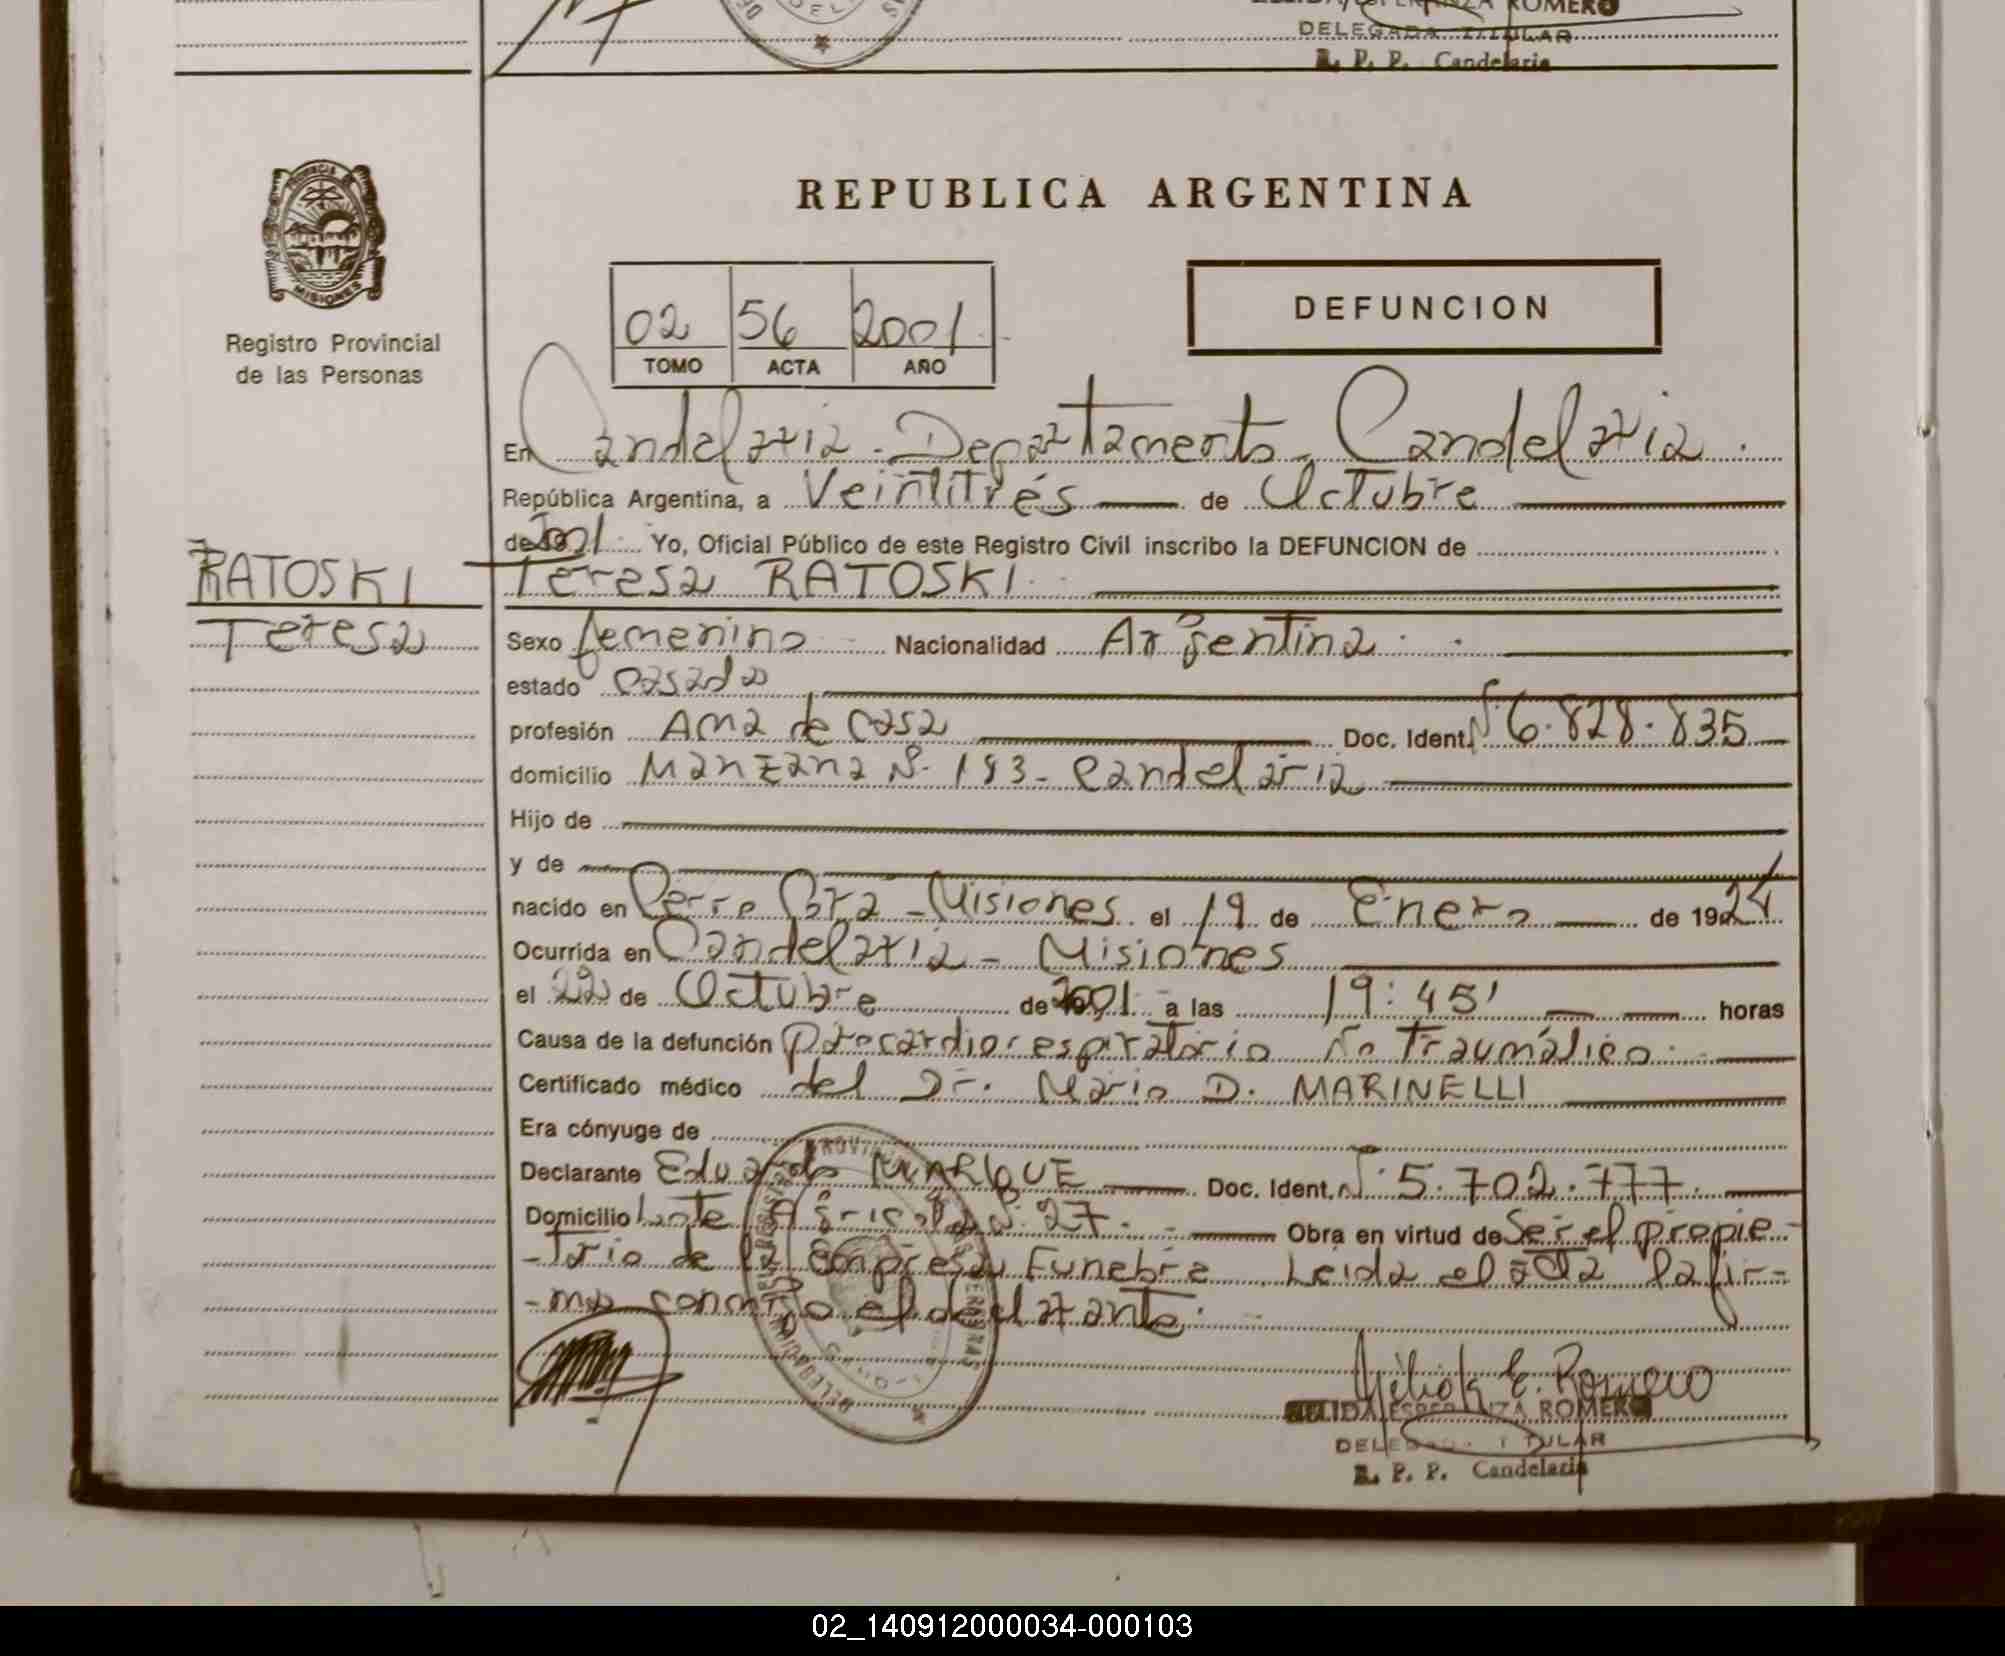 ROMERO
DELEGADA TITULAR
R. P. P. Candelaria
PROVINCIA DE
MISIONES
Registro Provincial
de las Personas
REPUBLICA ARGENTINA
02 56 2001
TOMO ACTA AÑO
DEFUNCION
En Candelaria - Departamento Candelaria.
República Argentina, a Veintitrés de Octubre
de 2001 Yo, Oficial Público de este Registro Civil inscribo la DEFUNCION de
RATOSKI
Teresa RATOSKI
Teresa
Sexo femenino Nacionalidad Argentina
estado casada
profesión Ama de casa Doc. Ident. Nº 6.828.835
domicilio Manzana Nº 193 - Candelaria
Hijo de
y de
nacido en Cerro Corá - Misiones el 19 de Enero de 1924
Ocurrida en Candelaria - Misiones
el 22 de Octubre de 2001 a las 19:45' horas
Causa de la defunción Parocardiorespiratorio No Traumático
Certificado médico del Dr. Mario D. MARINELLI
Era cónyuge de
Declarante Eduardo MANRIQUE Doc. Ident. Nº 5.702.777
Domicilio Lote Agricola Nº 27. Obra en virtud de Ser el propie-
-tario de la Empresa Funebre Leida el acta la fir-
-ma conmigo el declarante.
Nélida E. Romero
NELIDA ESPERANZA ROMERO
DELEGADA TITULAR
R. P. P. Candelaria
02_140912000034-000103